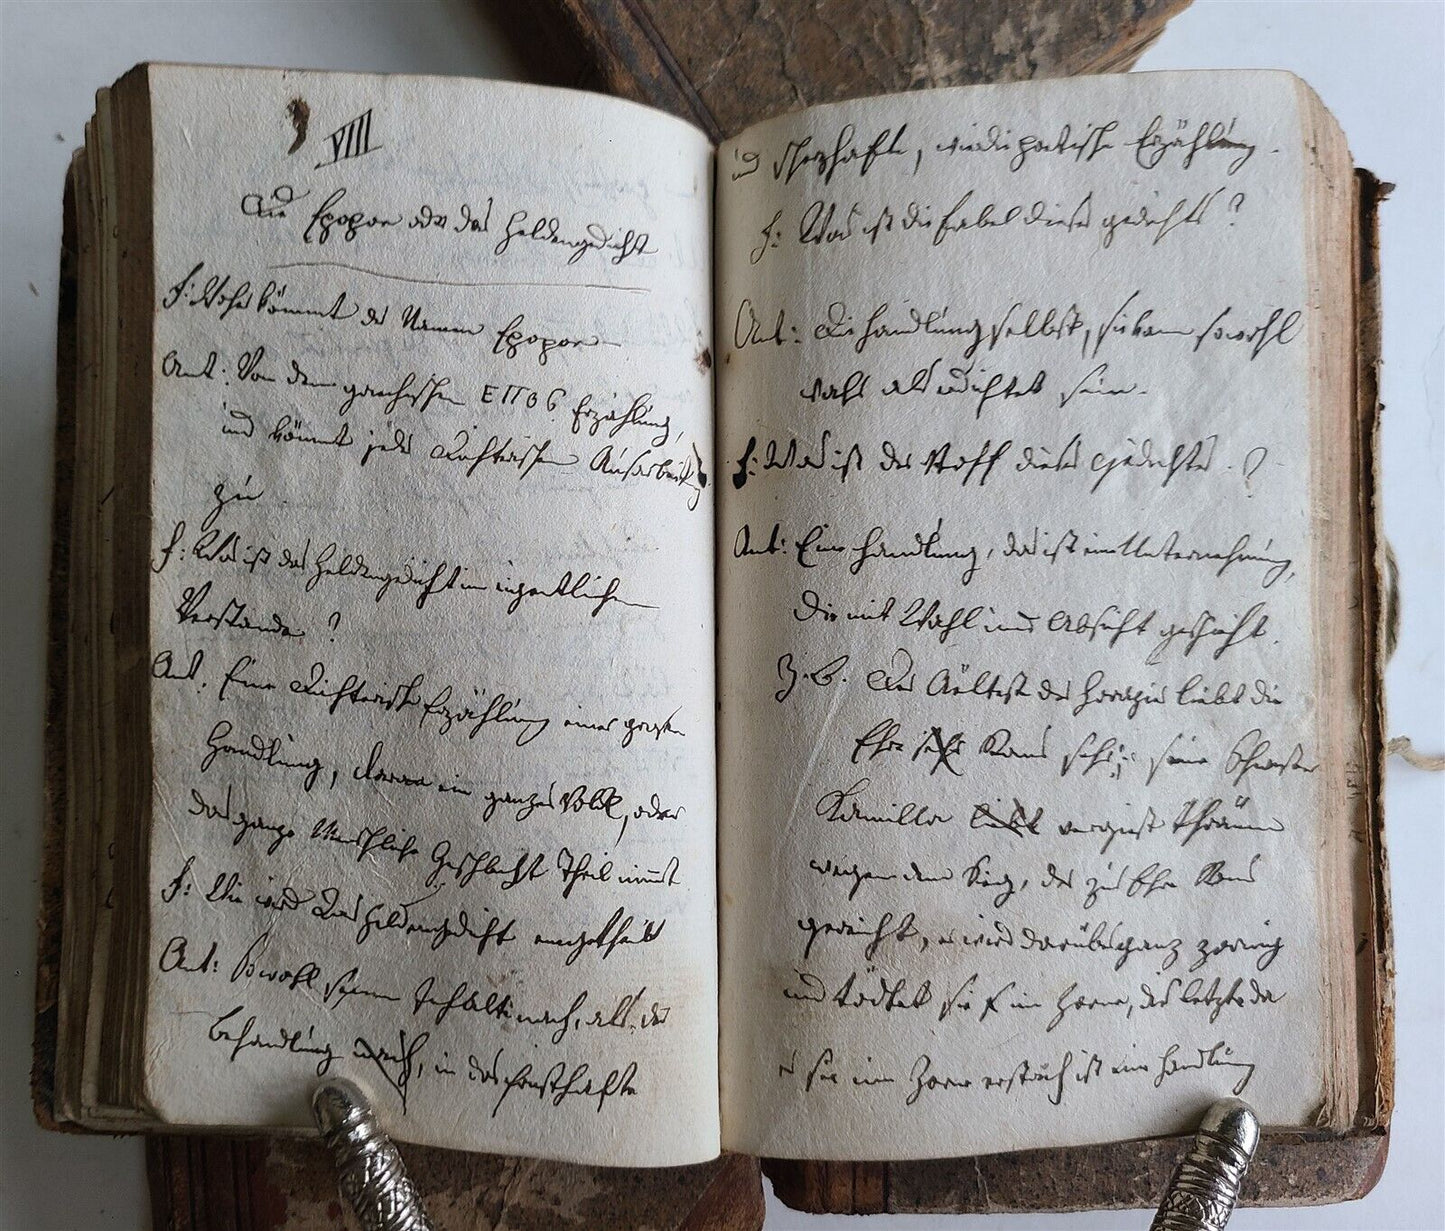 VIII
Die Epopoe oder das Heldengedicht
F: Woher kömmt der Namen Epopoe
Ant: Von dem griechischen ΕΠΟΣ Erzählung,
und kömmt jeder Dichterischen Ausarbeitung
zu.
F: Was ist das Heldengedicht im eigentlichen
Verstande?
Ant: Eine Dichterische Erzählung einer großen
Handlung, daran ein ganzes Volk, oder
das ganze Menschliche Geschlecht Theil nimmt
F: Wie wird das Heldengedicht eingetheilt
Ant: Sowohl seinem Inhalt nach, als der
Behandlung nach, in das ernsthafte
und scherzhafte, poetische Erzählung.
F: Was ist die Fabel dieses gedichts?
Ant: Die Handlung selbst, sie kann sowohl
wahr als erdichtet sein.
F: Was ist der Stoff dieses Gedichtes?
Ant: Eine Handlung, das ist ein Unternehmung,
die mit Wahl und Absicht geschieht.
Z. B. Der Aelteste der Horazier liebt die
Ehre Roms sehr; seine Schwester
Kamilla liebt vergießt Thränen
wegen dem Sieg, der zur Ehre Roms
gereicht, er wird darüber ganz zornig
und tödtet sie im Zorne, das letzte da
er sie im Zorne ersticht ist eine Handlung